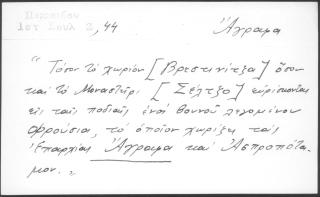 Παρασίδου
1στ Σουλ 2, 44
Ἄγραμα
"Τόσον τὸ χωρίον [Βρεστινίτζα] ὅσον
καὶ τὸ Μοναστῆρι [Σέλτζο] εὑρίσκονται
εἰς ταῖς ποδιαῖς ἑνοῦ βουνοῦ λεγομένου
Φρούσια, τὸ ὁποῖον χωρίζει ταῖς
Ἐπαρχίαις Ἄγραμα καὶ Ἀσπροπότα-
μον.„